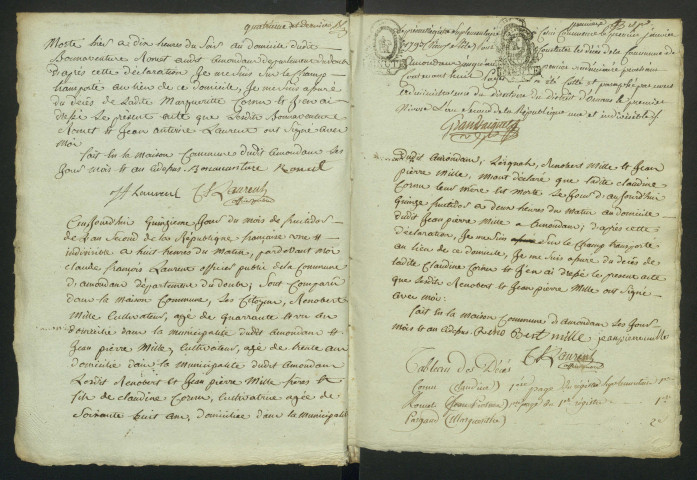 quatrieme et dernier
Morte hier a dix heures du Soir au domicile dudit
Bonnaventure Monet audit amondans département du doubs
D'après cette déclaration Je me suis Sur le Champ
transporté au lieu de ce domicile, Je me suis assuré
du décès de Ladite Marguerite et J'en ai
dressé Le present acte que Lesdits Bonnaventure
et Jean antoine Laurent ont Signé avec
moi
fait en la Maison Commune dudit amondans Les
Jour mois et an cydessus Bonaventure
Laurent C F Laurent
Cejourdhui Quinzieme Jour du mois de fructidor
de L'an Second de la République française une et
indivisible a huit heures du Matin, pardevant moi
claude françois Laurent officier public de la Commune
d'amondans département du doubs, Sont Comparu
dans la maison Commune, Les Citoyens, Renobert
Mille Cultivateur, agé de quarante un
domicilié dans la municipalité dudit amondans et
Jean pierre Mille, Cultivateur, agé de trente ans
domicilié dans la municipalité dudit amondans
Lesdits Renobert et Jean pierre Mille freres et
fils de claudine Cornu, Cultivatrice agée de
Soixante huit ans, domiciliée dans la municipalité
premier
Commune le premier janvier
1793
constater les décès de la Commune
premiere
été Cotté et paraphé par nous
administrateur du directoire du district d'ornans le premier
Nivose L'an Second de la République une et indivisible
Dudit Amondans, Lesquels, Renobert Mille et Jean
pierre Mille, m'ont déclaré que Ladite claudine
Cornu leur Mere est Morte Le Jour d'aujourdhui
Quinze fructidor a deux heures du Matin au domicile
dudit Jean pierre Mille a Amondans; d'après cette
déclaration, Je me suis Sur le Champ transporté
au lieu de ce domicile, Je me suis assuré du décès de
Ladite Claudine Cornu et J'en ai dressé le present acte
que Lesdits Renobert et Jean pierre Mille ont Signé
avec moi:
fait en la maison Commune d'amondans Les Jour
mois et an cydessus Mille jeanpierremille
C F Laurent
Tableau Des Décés
Cornu (Claudine) 1ere page du registre Suplementaire 1
1ere page du 1er registre 1
(Marguerite) 2